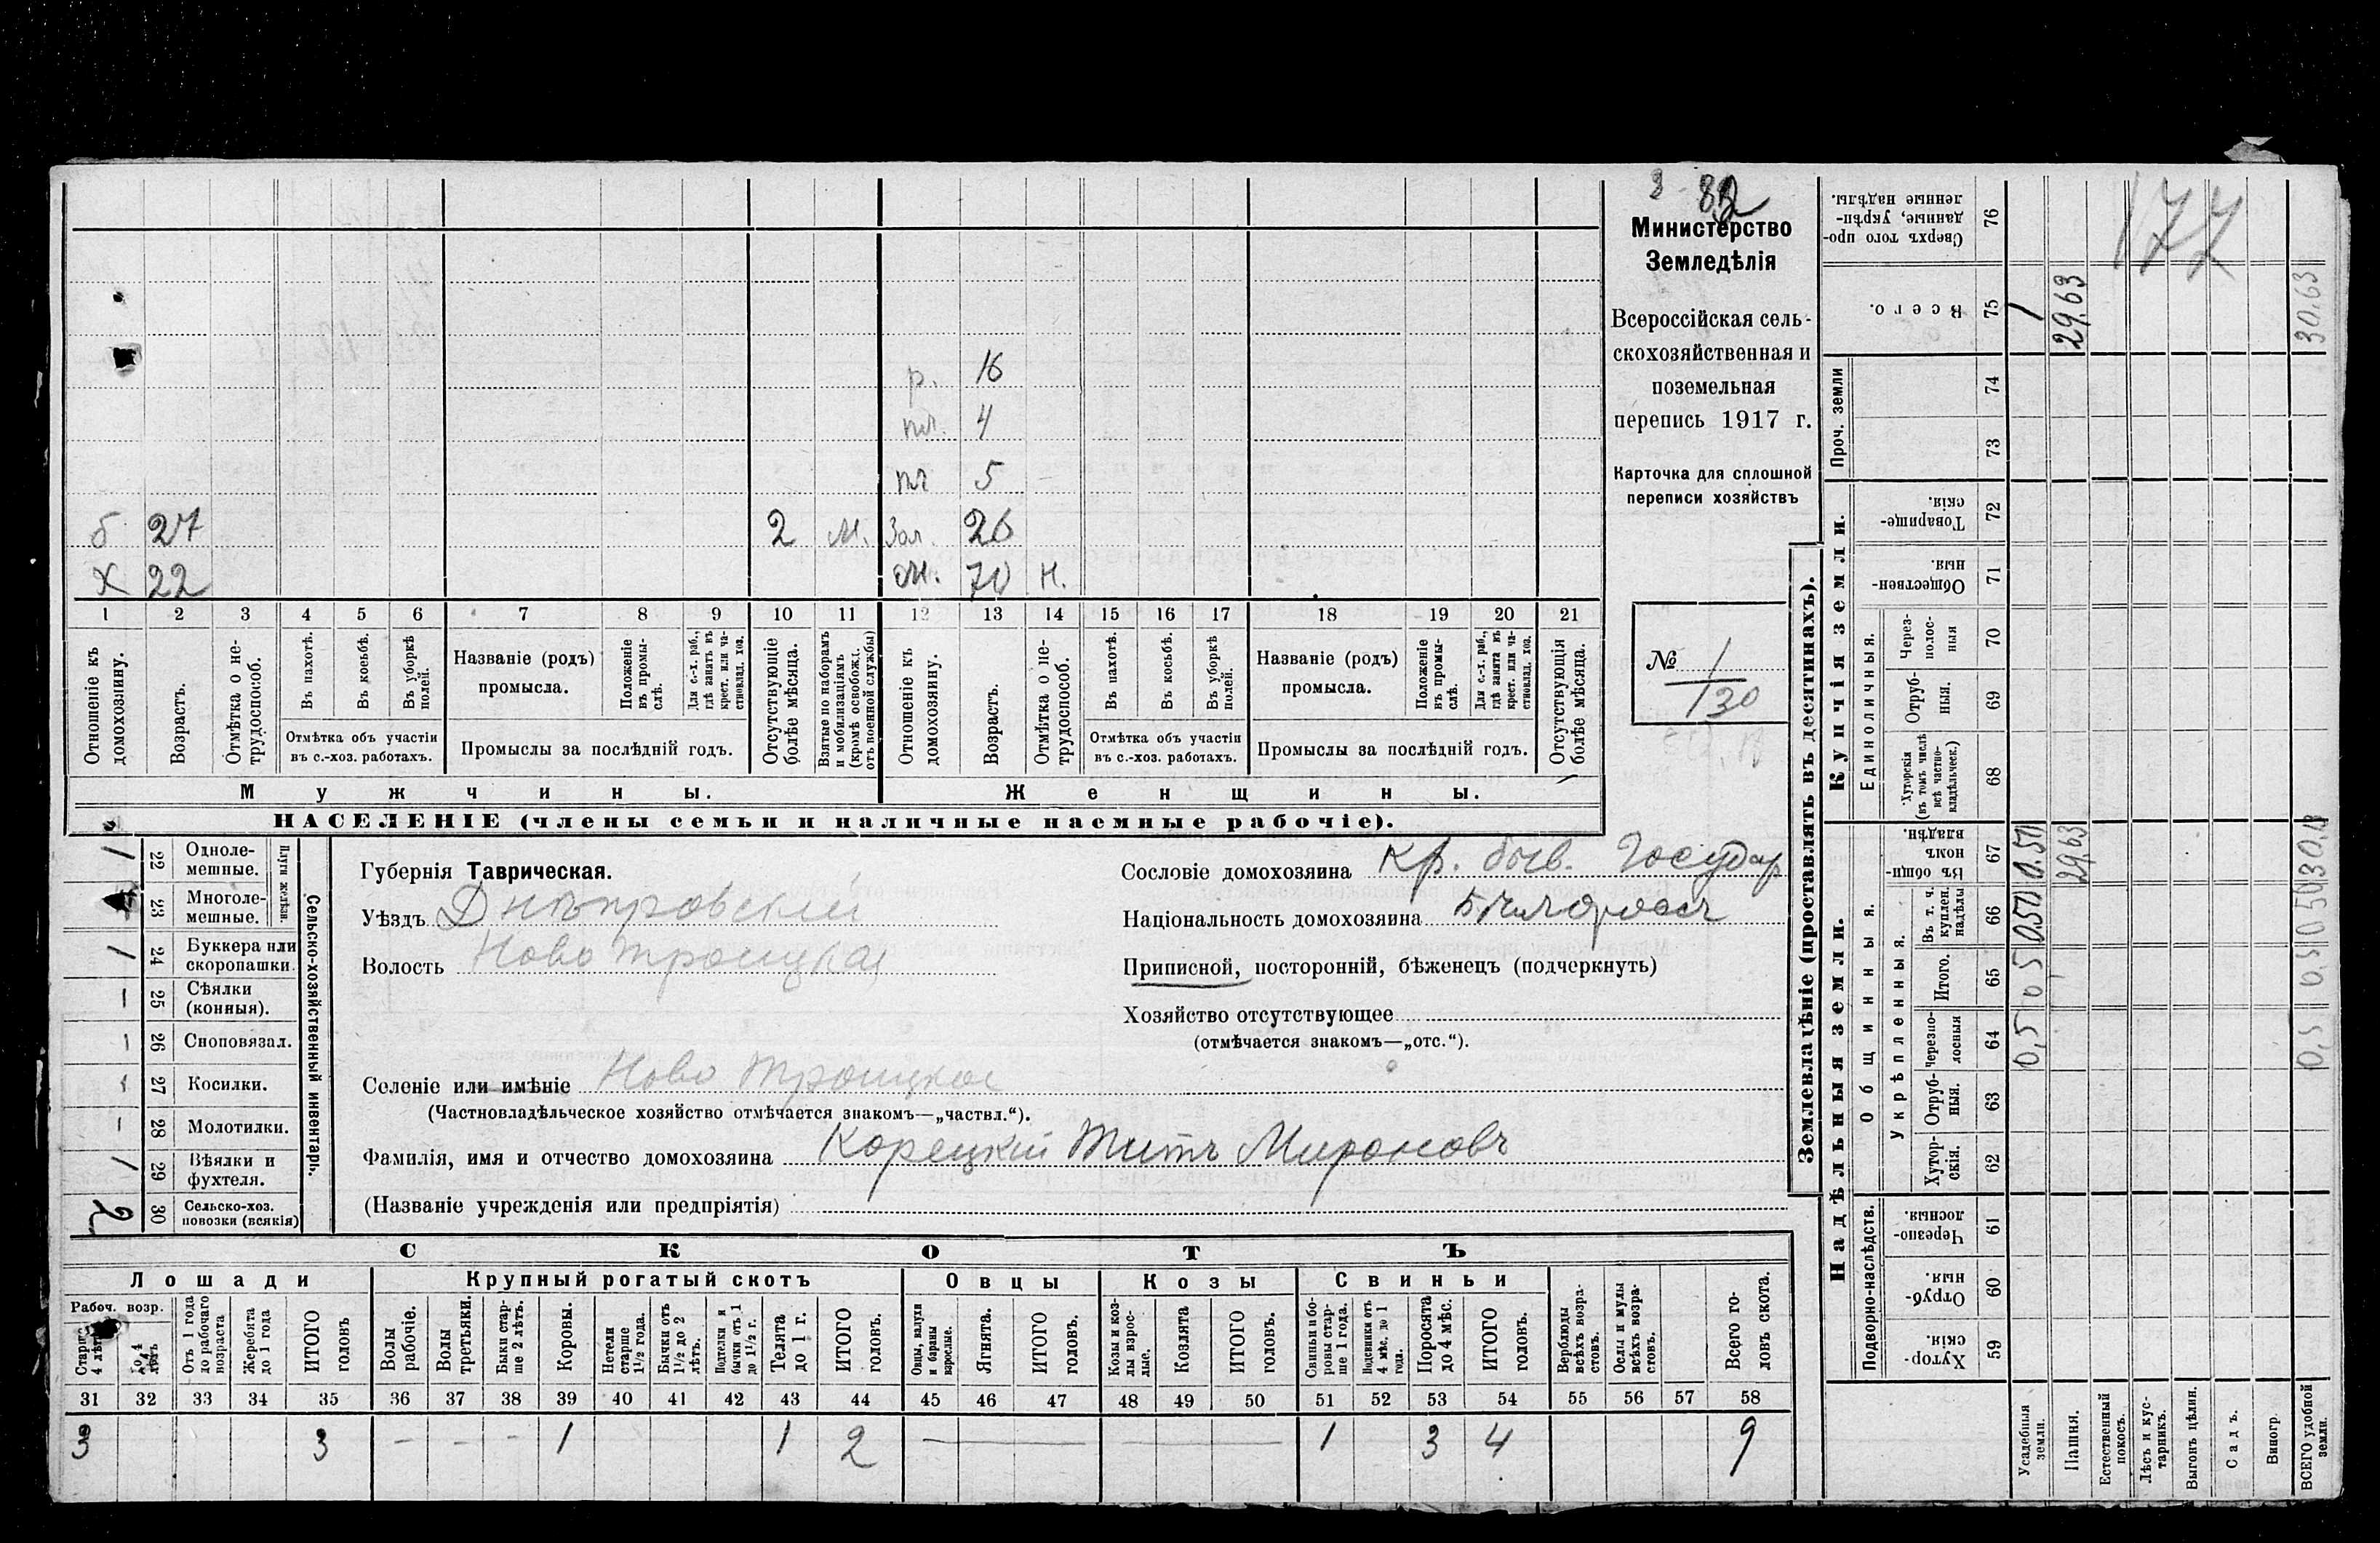 3 - 82
Министерство
Земледѣлія
Всероссійская сель-
скохозяйственная и
поземельная
перепись 1917 г.
Карточка для сплошной
переписи хозяйствъ
№ 1
130
177
р. 16
пл. 4
пл 5
б 27 2 м. Зол. 26
х 22 м. 70 н.
1 2 3 4 5 6 7 8 9 10 11 12 13 14 15 16 17 18 19 20 21
Отношеніе къ домохозяину.
Возрастъ.
Отмѣтка о не-трудоспособ.
Въ пахотѣ.
Въ косьбѣ.
Въ уборкѣ полей.
Отмѣтка объ участіи
въ с.-хоз. работахъ.
Названіе (родъ)
промысла.
Положеніе въ промы-слѣ.
Для с.-х. раб., гдѣ занятъ въ крест. или ча-стновлад. хоз.
Промыслы за послѣдній годъ.
Отсутствующіе болѣе мѣсяца.
Взятые по наборамъ и мобилизаціямъ (кромѣ освобожд. отъ военной службы)
Отношеніе къ домохозяину.
Возрастъ.
Отмѣтка о не-трудоспособ.
Въ пахотѣ.
Въ косьбѣ.
Въ уборкѣ полей.
Отмѣтка объ участіи
въ с.-хоз. работахъ.
Названіе (родъ)
промысла.
Положеніе въ промы-слѣ.
Для с.-х. раб., гдѣ занята въ крест. или ча-стновлад. хоз.
Промыслы за послѣдній годъ.
Отсутствующія болѣе мѣсяца.
Мужчины. Женщины.
НАСЕЛЕНІЕ (члены семьи и наличные наемные рабочіе).
Сельско-хозяйственный инвентарь.
Плуги желѣзн.
1 22 Одноле-мешные.
23 Многоле-мешные.
1 24 Буккера или скоропашки.
— 25 Сѣялки (конныя).
— 26 Сноповязал.
27 Косилки.
— 28 Молотилки.
1 29 Вѣялки и фухтеля.
2 30 Сельско-хоз. повозки (всякія)
Губернія Таврическая.
Уѣздъ Днѣпровскій
Волость Ново Троицкая
Селеніе или имѣніе Ново Троицкое
(Частновладѣльческое хозяйство отмѣчается знакомъ—„частвл.“).
Фамилія, имя и отчество домохозяина Корецкій Титъ Мироновъ
(Названіе учрежденія или предпріятія)
Сословіе домохозяина Кр. быв. Государ
Національность домохозяина
Приписной, посторонній, бѣженецъ (подчеркнуть)
Хозяйство отсутствующее
(отмѣчается знакомъ—„отс.“).
СКОТЪ
Лошади Крупный рогатый скотъ Овцы Козы Свиньи
Рабоч. возр.
Старше 4 лѣтъ
до 4 лѣтъ
Отъ 1 года до рабочаго возраста
Жеребята до 1 года
ИТОГО головъ
Волы рабочіе.
Волы третьяки.
Быки стар-ше 2 лѣтъ.
Коровы.
Нетели старше 1½ года.
Бычки отъ 1½ до 2 лѣтъ.
Подтелки и бычки отъ 1 до 1½ г.
Телята до 1 г.
ИТОГО головъ.
Овцы, валухи и бараны взрослые.
Ягнята.
ИТОГО головъ.
Козы и коз-лы взрос-лые.
Козлята
ИТОГО головъ.
Свиньи и бо-ровы стар-ше 1 года.
Подсвинки отъ 4 мѣс. до 1 года.
Поросята до 4 мѣс.
ИТОГО головъ.
Верблюды всѣхъ возра-стовъ.
Ослы и мулы всѣхъ возра-стовъ.
Всего го-ловъ скота.
31 32 33 34 35 36 37 38 39 40 41 42 43 44 45 46 47 48 49 50 51 52 53 54 55 56 57 58
3 3 — — — 1 1 2 — — 1 3 4 9
Землевладѣніе (проставлять въ десятинахъ).
Надѣльныя земли. Купчія земли. Проч. земли
Подворно-наслѣдств. Общинныя. Единоличныя.
Укрѣпленныя.
59 Хутор-скія.
60 Отруб-ныя.
61 Черезпо-лосныя.
62 Хутор-скія.
63 Отруб-ныя.
64 Черезпо-лосныя
65 Итого.
66 Въ т. ч. куплен. надѣлы
67 Въ общин-номъ владѣн.
68 Хуторскія (въ томъ числѣ всѣ частно-владѣльческ.)
69 Отруб-ныя.
70 Через-полос-ныя
71 Обществен-ныя.
72 Товарище-скія.
73
74
75 Всего.
76 Сверхъ того про-данные, укрѣп-ленные надѣлы.
Усадебныя земли. 0,5 0,5 0.50 0.50 1
Пашня. 29,63 29.63
Естественный покосъ.
Лѣсъ и кус-тарникъ.
Выгонъ цѣлин.
Садъ.
Виногр.
ВСЕГО удобной земли. 0,5 0,5 0 50 30,13 30,63